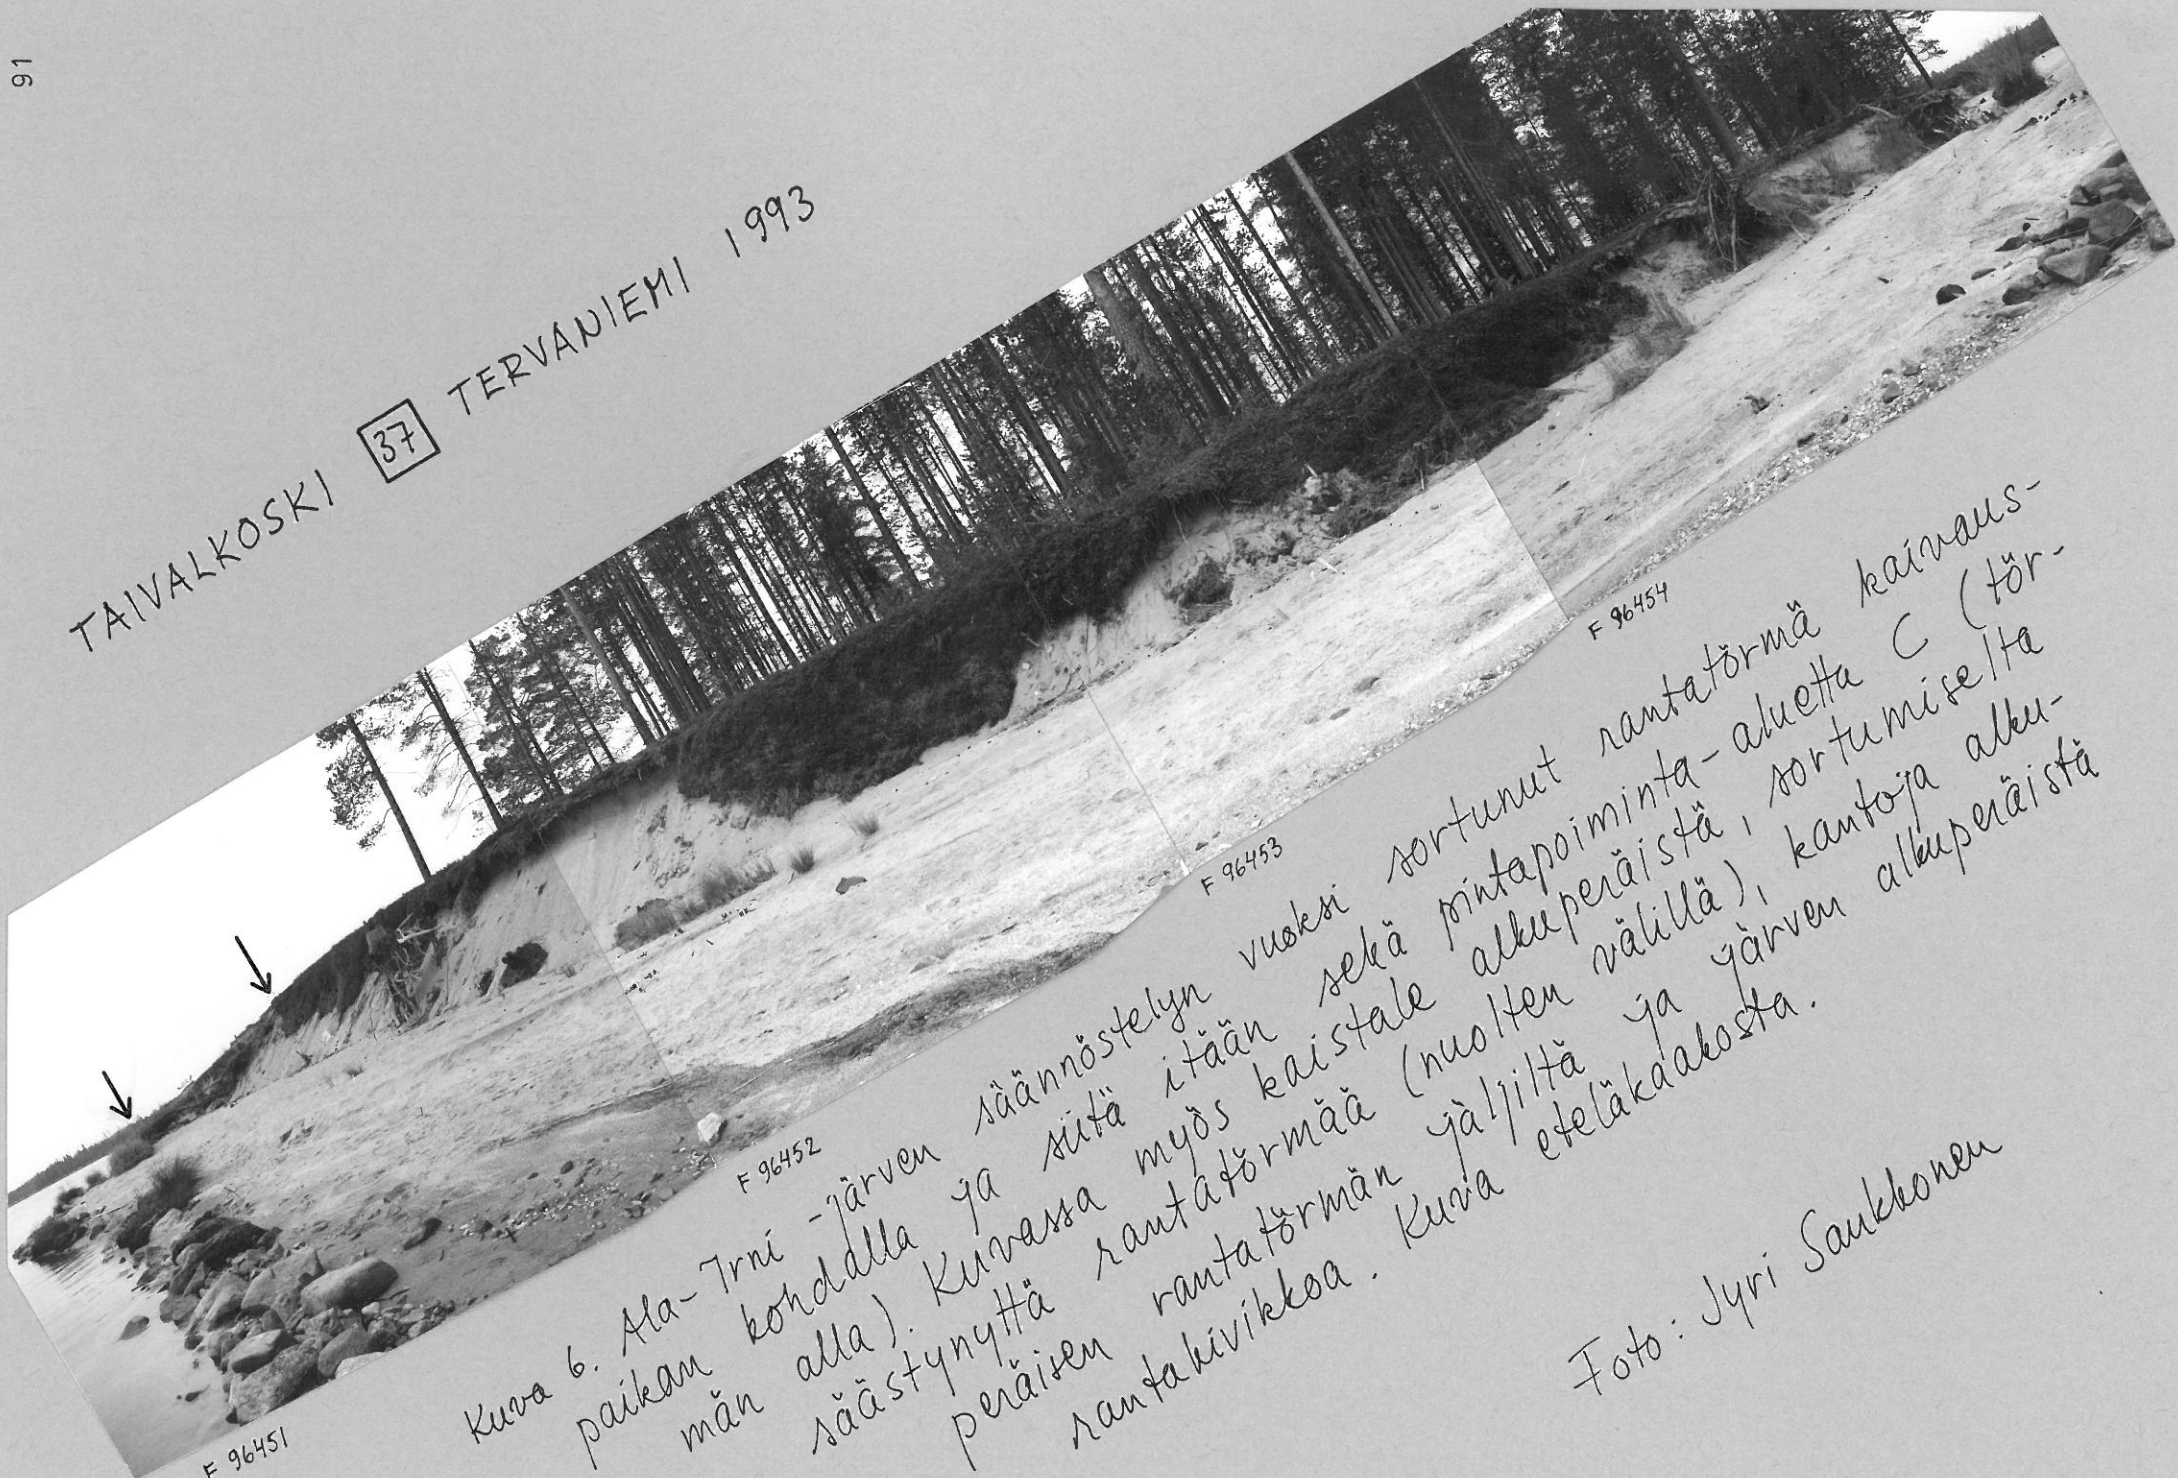 91
TAIVALKOSKI 37 TERVANIEMI 1993
F 96451
F 96452
F 96453
F 96454
Kuva 6. Ala-Irni -järven säännöstelyn vuoksi sortunut rantatörmä kaivaus-
paikan kohdalla ja siitä itään sekä pintapoiminta-aluetta C (tör-
män alla). Kuvassa myös kaistale alkuperäistä, sortumiselta
säästynyttä rantatörmää (nuolten välillä), kantoja alku-
peräisen rantatörmän jäljiltä ja järven alkuperäistä
rantakivikkoa. Kuva eteläkaakosta.
Foto: Jyri Saukkonen